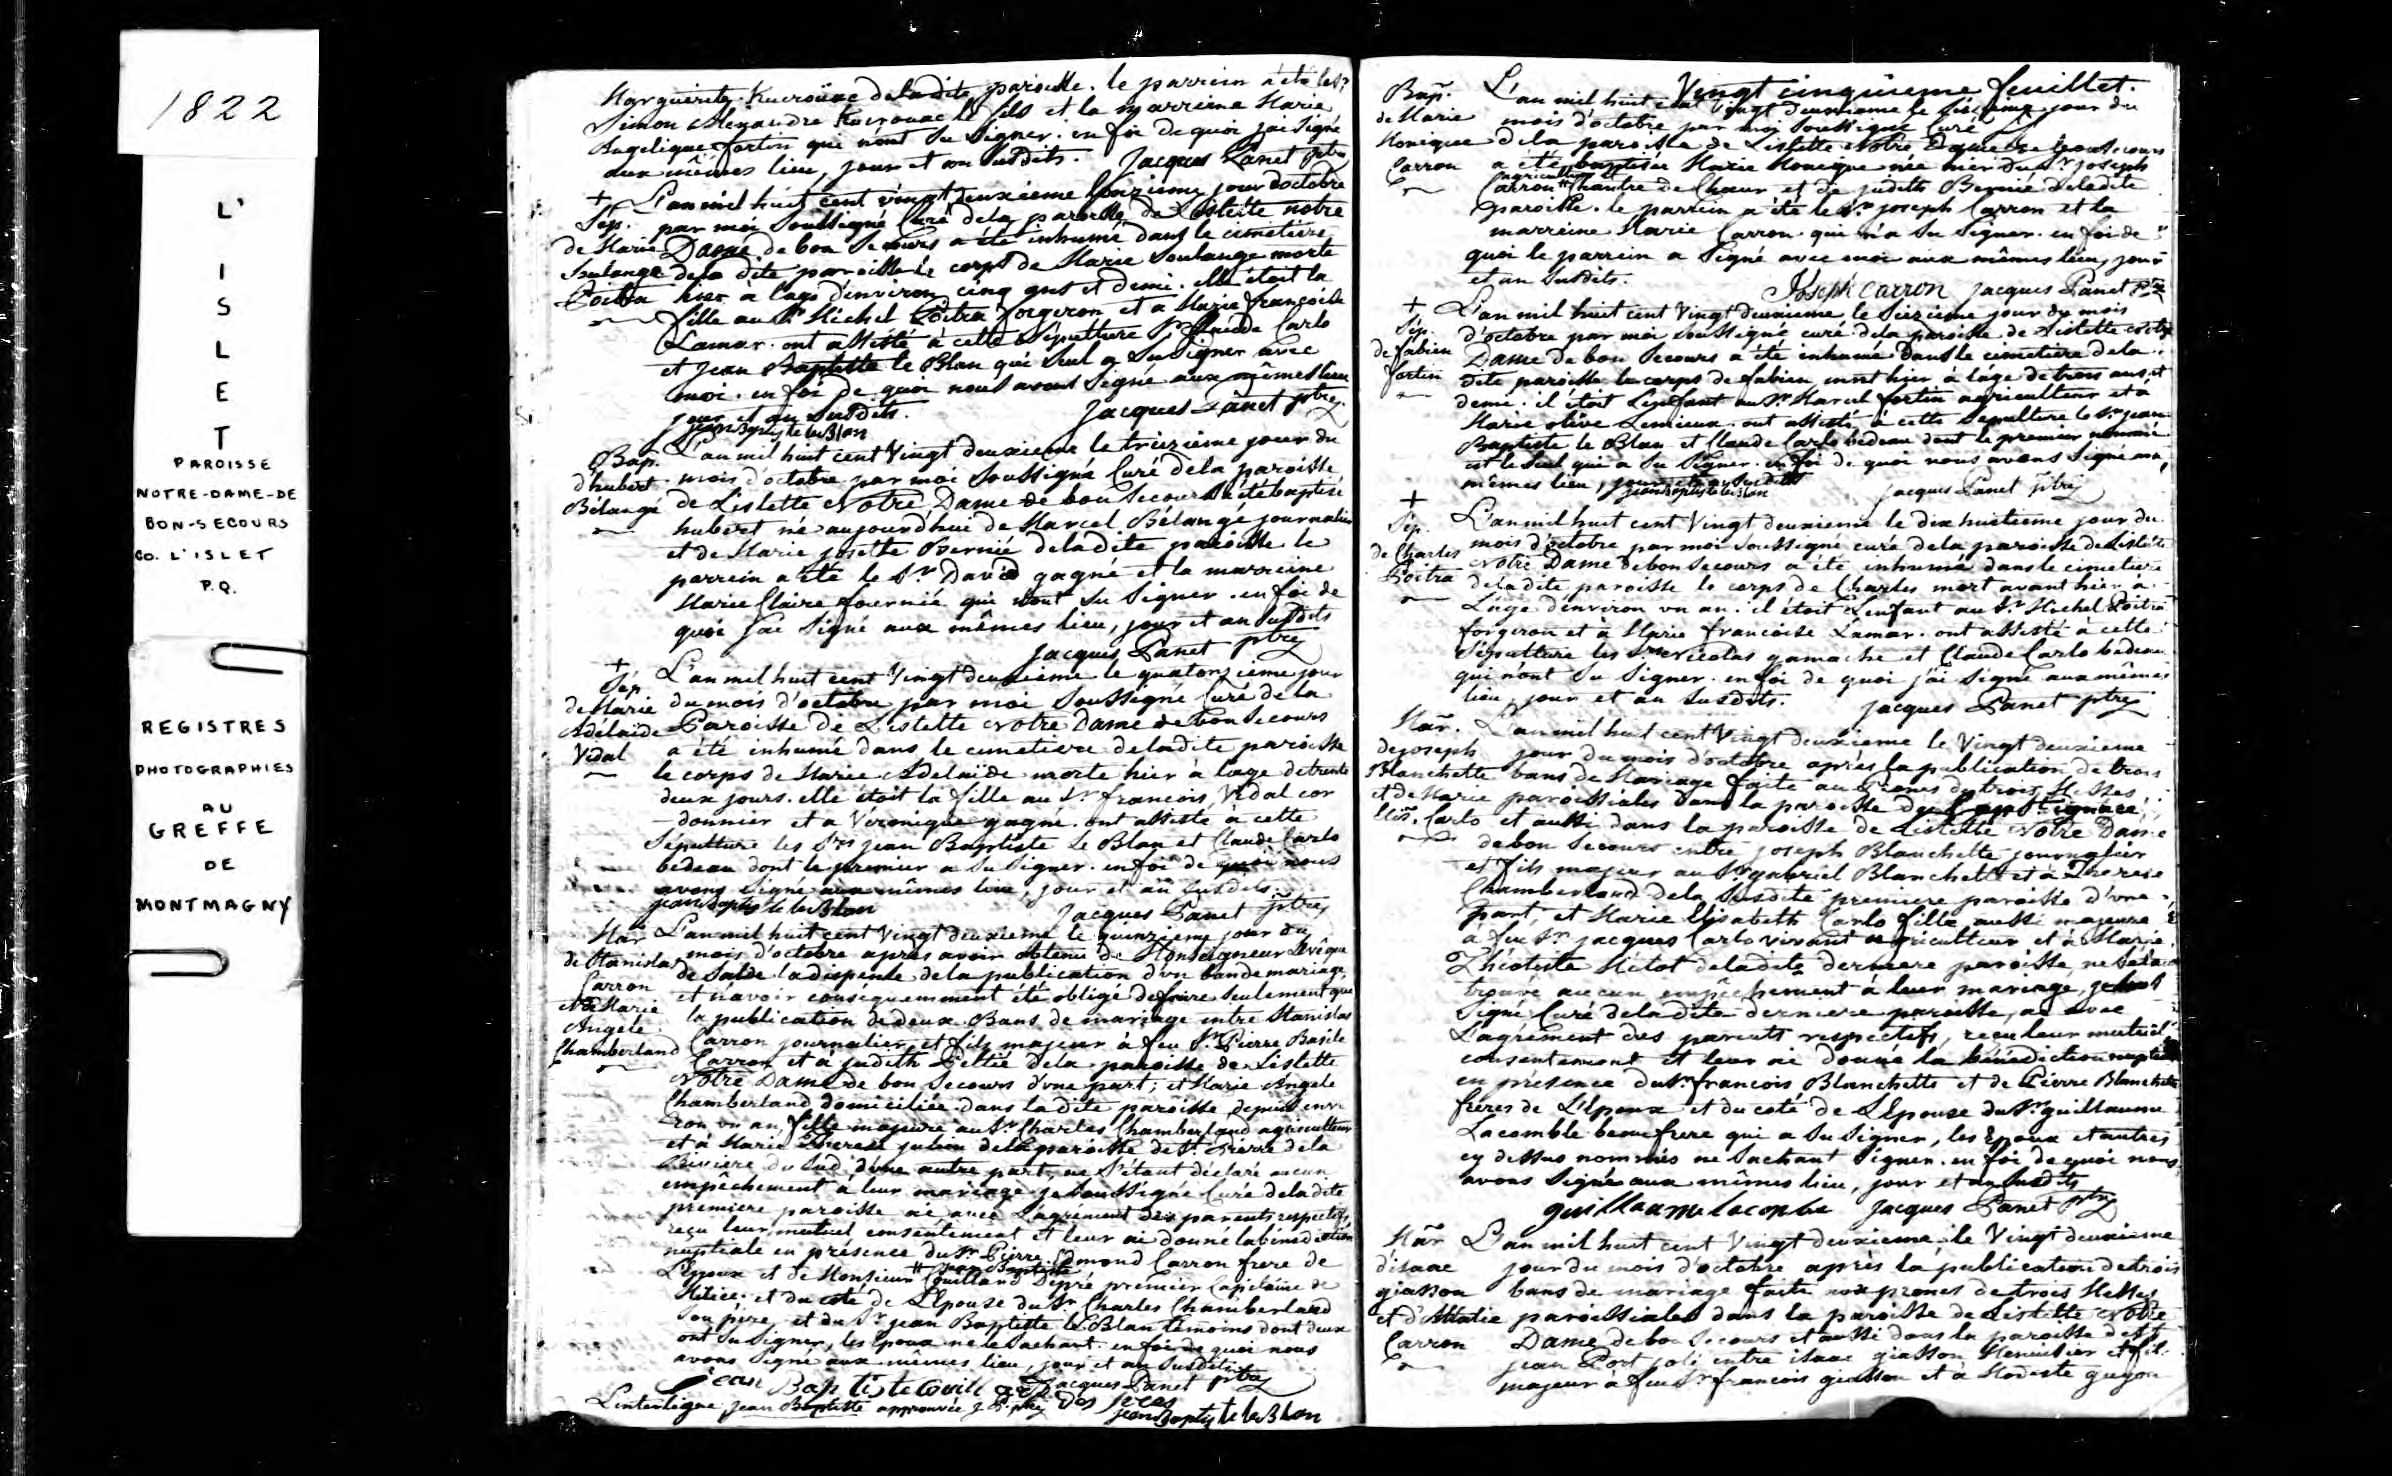 1822
L'
I
S
L
E
T
PAROISSE
NOTRE-DAME-DE
BON-SECOURS
CO. L'ISLET
P.Q.
REGISTRES
PHOTOGRAPHIES
AU
GREFFE
DE
MONTMAGNY
Marguerite Kuerouac de la dite paroisse. le parrein a été le Sr
Simon Alexandre Kuerouac le fils et la marreine Marie
Angelique fortin qui n'ont su signer. en foi de quoi j'ai signé
aux mêmes lieu, jour et an susdits. Jacques Panet ptre
+ L'an mil huit cent vingt deuxieme le jour d'octobre
Sép. par moi soussigné Curé de la paroisse de Lislette notre
de Marie Dame de bon Secours a été inhumé dans le cimetiere
Soulange de la dite paroisse le corps de Marie Soulange morte
Poitra hier à l'age d'environ cinq ans et demi. elle étoit la
fille au Sr Michel Poitra forgeron et a Marie françoise
Lamar. ont assisté à cette sépulture Claude Carlo
et Jean Baptiste le Blan qui seul a su signer avec
moi. en foi de quoi nous avons signé aux mêmes lieu
jour et an susdits. Jacques Panet ptre
jean Baptiste le Blan
Bap. L'an mil huit cent Vingt deuxieme le treizieme jour du
d'hubert mois d'octobre par moi soussigné Curé de la paroisse
Bélangé de Lislette Notre Dame de bon Secours a été baptisé
hubert né aujourd'hui de Marcel Bélangé journalier
et de Marie josette Bernié de la dite paroisse le
parrein a été le Sr David gagné et la marreine
Marie Claire fournié qui n'ont su signer. en foi de
quoi j'ai signé aux mêmes lieu, jour et an susdits
Jacques Panet ptre
+ L'an mil huit cent Vingt deuxieme le quatorzieme jour
Sép. du mois d'octobre par moi soussigné Curé de la
de Marie Paroisse de Lislette Notre Dame de bon Secours
Adélaïde a été inhumé dans le cimetiere de la dite paroisse
Vidal le corps de Marie Adelaïde morte hier à l'age de trente
deux jours. elle étoit la fille au Sr francois Vidal cor
-donnier et a Véronique gagné. ont assisté à cette
Sépulture les Srs jean Baptiste le Blan et Claude Carlo
bedeau dont le premier a su signer. en foi de quoi nous
avons signé aux mêmes lieu, jour et an susdits.
jean Baptiste le Blan Jacques Panet ptre
Mar. L'an mil huit cent Vingt deuxieme le quinzieme jour du
de Stanislas mois d'octobre après avoir obtenu de Monseigneur Levêque
Carron de Salde la dispense de la publication d'un ban de mariage,
et de Marie et n'avoir conséquemment été obligé de faire seulement que
Angele la publication de deux Bans de mariage entre Stanislas
Chamberland Carron journalier et fils majeur à feu Sr Pierre Basile
Carron et à judith Peltié de la paroisse de Lislette
Notre Dame de bon Secours d'une part; et Marie Angele
Chamberland domiciliée dans la dite paroisse depuis envi
ron un an, fille majeure au Sr Charles Chamberland agriculteur
et à Marie Therese julien de la paroisse de St. Pierre de la
Riviere du Sud d'une autre part, ne s'étant déclaré aucun
empêchement à leur mariage je soussigné Curé de la dite
premiere paroisse ai avec l'agrément des parents respectifs
reçu leur mutuel consentement et leur ai donné la bénédiction
nuptiale en présence du Sr Pierre Edmond Carron frere de
# jean Baptiste
L'Epoux et de Monsieur # Couillard Dépré premier Capitaine de
Milice. et du coté de L'Epouse du Sr Charles Chamberland
son pere, et du Sr jean Baptiste le Blan témoins dont deux
ont su signer, les Epoux ne le sachant. en foi de quoi nous
avons signé aux mêmes lieu, jour et an susdits
jean Baptiste Couillard Jacques Panet ptre
L'interligne jean Baptiste approuvée J. P. ptre des pres
jean Baptiste le Blan
Vingt cinquieme feuillet.
Bap. L'an mil huit cent Vingt deuxieme le jour du
de Marie mois d'octobre par moi soussigné Curé
Monique de la paroisse de Lislette Notre Dame de bon Secours
Carron a été baptisée Marie Monique née hier du Sr joseph
agriculteur et
Carron # Chantre de Chœur et de judith Bernié de la dite
paroisse. le parrein a été le Sr joseph Carron et la
marreine Marie Carron qui n'a su signer. en foi de
quoi le parrein a signé avec moi aux mêmes lieu, jour
et an susdits.
Joseph Carron Jacques Panet ptre
+ L'an mil huit cent Vingt deuxieme le seizieme jour du mois
Sép. d'octobre par moi soussigné curé de la paroisse de Lislette Notre
de fabien Dame de bon Secours a été inhumé dans le cimetiere de la
fortin dite paroisse le corps de fabien mort hier à l'âge de trois ans et
demi. il étoit L'enfant au Sr Marcel fortin agriculteur et à
Marie olive Lemieux. ont assisté à cette sépulture le Sr jean
Baptiste le Blan et Claude Carlo bedeau dont le premier nommé
est le seul qui a su signer. en foi de quoi nous avons signé aux
mêmes lieu, jour et an susdits
jean Baptiste le Blan Jacques Panet ptre
+ L'an mil huit cent Vingt deuxieme le dix huitieme jour du
Sép. mois d'octobre par moi soussigné curé de la paroisse de Lislette
de Charles Notre Dame de bon Secours a été inhumé dans le cimetiere
Poitra de la dite paroisse le corps de Charles mort avant hier à
L'age d'environ un an. il étoit L'enfant au Sr. Michel Poitra
forgeron et à Marie francoise Lamar. ont assisté à cette
Sépulture les Srs Nicolas gamache et Claude Carlo bedeau
qui n'ont su signer. en foi de quoi j'ai signé aux mêmes
lieu, jour et an susdits. Jacques Panet ptre
Mar. L'an mil huit cent Vingt deuxieme le Vingt deuxieme
de joseph jour du mois d'octobre après la publication de trois
Blanchette bans de Mariage faite aux Prones de trois Messes
et de Marie paroissiales dans la paroisse du Cap St. ignace,
Elis. Carlo et aussi dans la paroisse de Lislette Notre Dame
de bon Secours entre joseph Blanchette journalier
et fils majeur au Sr gabriel Blanchette et à Therese
Chamberland de la susdite premiere paroisse d'une
part, et Marie Elisabeth Carlo fille aussi majeure
à feu Sr jacques Carlo vivant agriculteur et à Marie
Théotiste Métot de la dite derniere paroisse, ne s'étant
trouvé aucun empêchement à leur mariage, je sous
signé Curé de la dite derniere paroisse, ai avec
L'agrément des parents respectifs, reçu leur mutuel
consentement et leur ai donné la bénédiction nuptiale
en présence du Sr francois Blanchette et de Pierre Blanchette
freres de L'Epoux et du coté de L'Epouse du Sr guillaume
Lacomble beau frere qui a su signer, les Epoux et autres
cy dessus nommés ne sachant signer. en foi de quoi nous
avons signé aux mêmes lieu, jour et an susdits
guillaume lacombe Jacques Panet ptre
Mar. L'an mil huit cent Vingt deuxieme le Vingt deuxieme
d'isaac jour du mois d'octobre après la publication de trois
giasson bans de mariage faite aux prones de trois Messes
et d'Attalie paroissiales dans la paroisse de Lislette Notre
Carron Dame de bon Secours et aussi dans la paroisse de St
jean Port joli entre isaac giasson Menuisier et fils
majeur à feu Sr francois giasson et à Modeste guyon